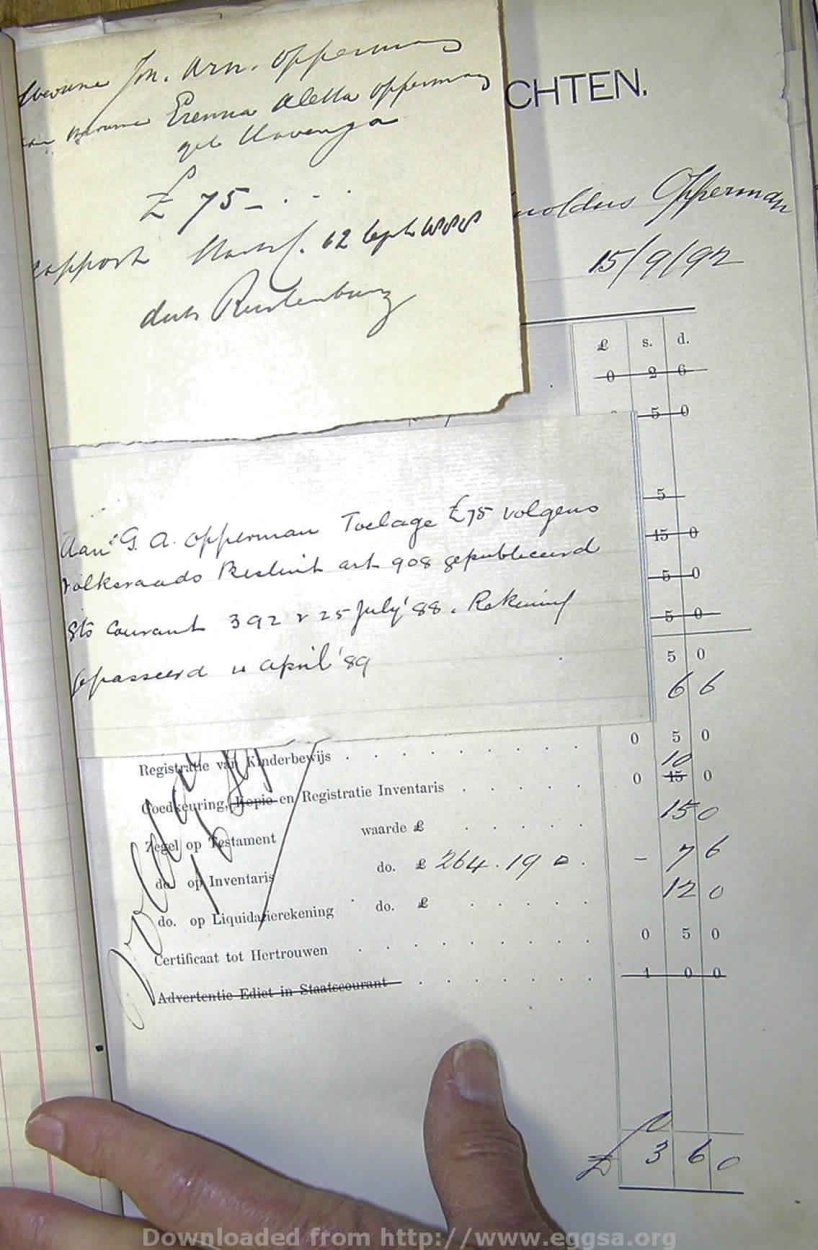 Jn. Arn. Opperman
Erenna Aletta Opperman
geb Havenga
£ 75 - . . .
rapport
Rustenburg
CHTEN.
noldus Opperman
15/9/92
£ s. d.
0 2 6
5 0
5
15 0
5 0
5 0
5 0
6 6
Aan G. A. Opperman Toelage £75 volgens
Volksraads Besluit art 908 gepubliceerd
Sts Courant 392 v 25 July '88. Rekening
gepasseerd 11 April '89
Registratie van Kinderbewijs . . . . . . . . 0 5 0
10
Goedkeuring, Kopie en Registratie Inventaris . . . . . 0 15 0
Zegel op Testament waarde £ . . . . . 15 0
do. op Inventaris do. £ 264.19 0 . - 7 6
do. op Liquidatierekening do. £ . . . . . 12 0
Certificaat tot Hertrouwen . . . . . . . . 0 5 0
Advertentie Edict in Staatscourant . . . . . . 1 0 0
£ 3 6 0
Downloaded from http://www.eggsa.org